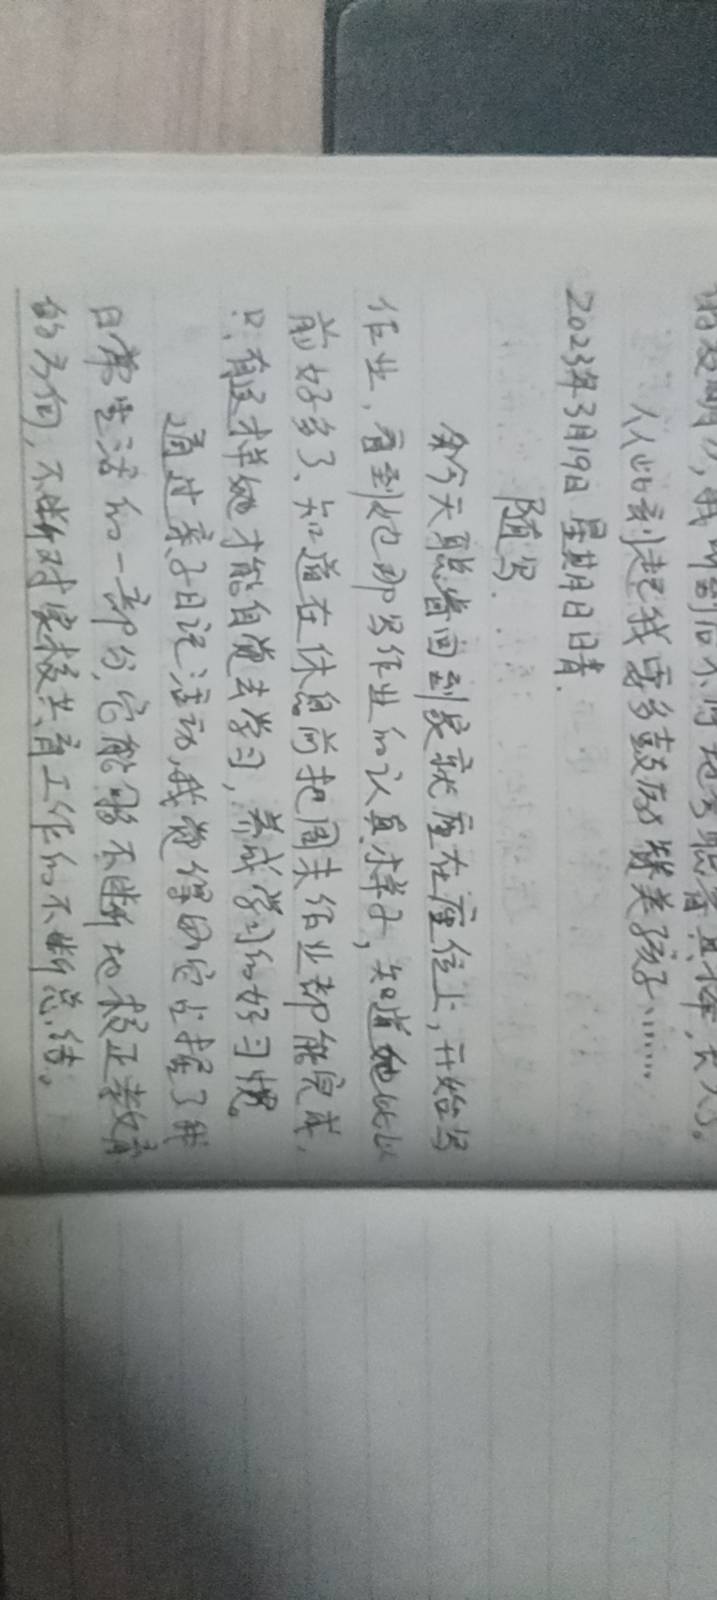 从此刻起我要多鼓励赞美孩子……
2023年3月19日 星期日 晴.
随写.
今天聪睿回到家就座在座位上,开始写
作业,看到她那写作业的认真样子,知道她比以
前好多了、知道在休息前把周末作业都能完成,
只有这样她才能自觉去学习,养成学习的好习惯。
通过亲子日记活动,我觉得它占据了我
日常生活的一部分,它能够不断地校正教育
的方向,不断对家校共育工作的不断总结。